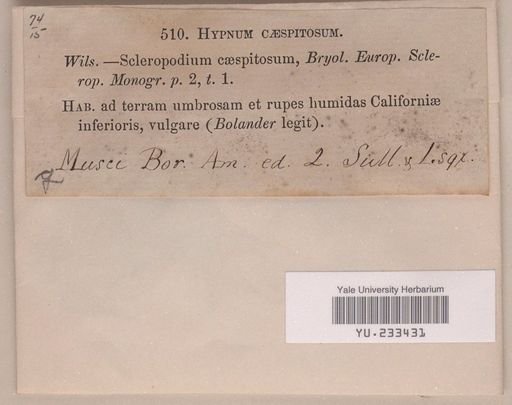 74
15
510. HYPNUM CÆSPITOSUM.
Wils. —Scleropodium cæspitosum, Bryol. Europ. Scle-
rop. Monogr. p. 2, t. 1.
HAB. ad terram umbrosam et rupes humidas Californiæ
inferioris, vulgare (Bolander legit).
Musci Bor. Am. ed. 2. Sull. & Lsqx.
Yale University Herbarium
YU.233431